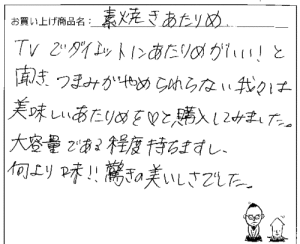 お買い上げ商品名: 素焼きあたりめ
TVでダイエットにあたりめがいい!と
聞き、つまみがやめられない我家は
美味しいあたりめを♡と購入してみました。
大容量である程度持ちますし、
何より味!!驚きの美いしさでした。